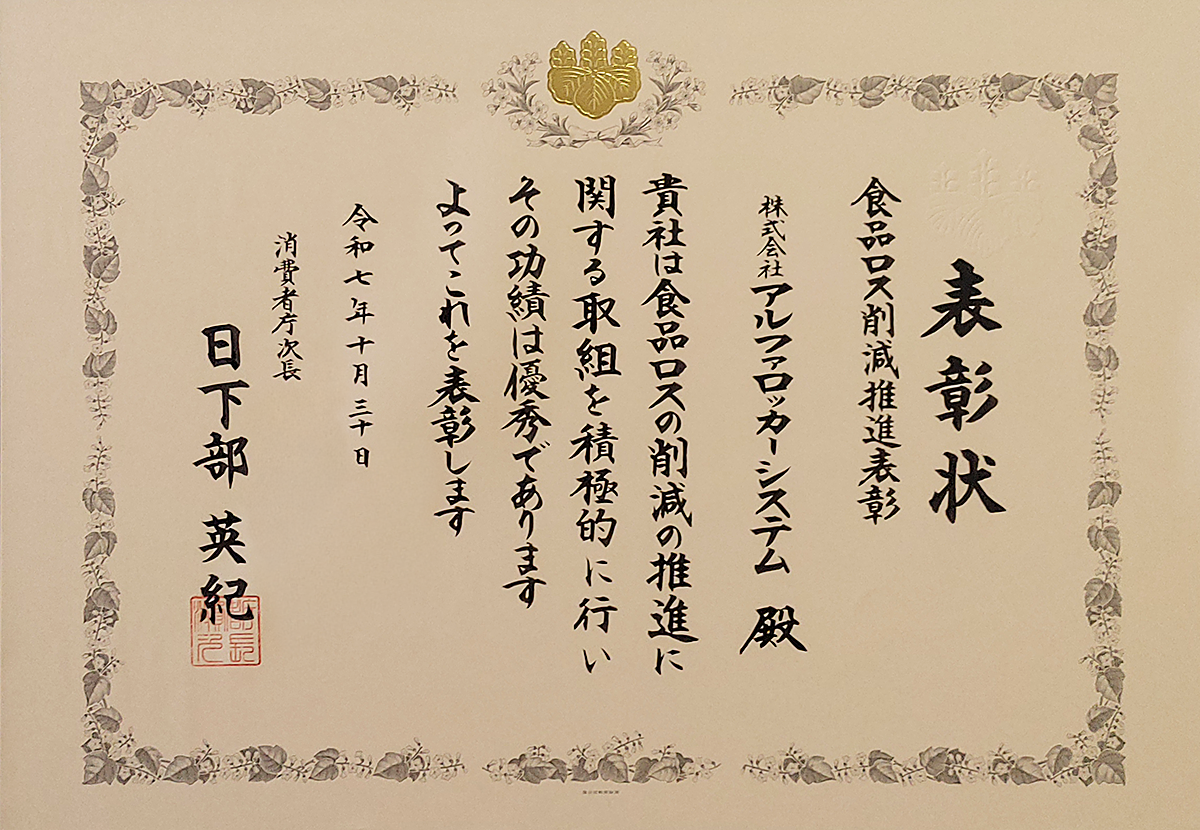 表彰状
食品ロス削減推進表彰
株式会社アルファロッカーシステム 殿
貴社は食品ロスの削減の推進に
関する取組を積極的に行い
その功績は優秀であります
よってこれを表彰します
令和七年十月三十日
消費者庁次長
日下部 英紀